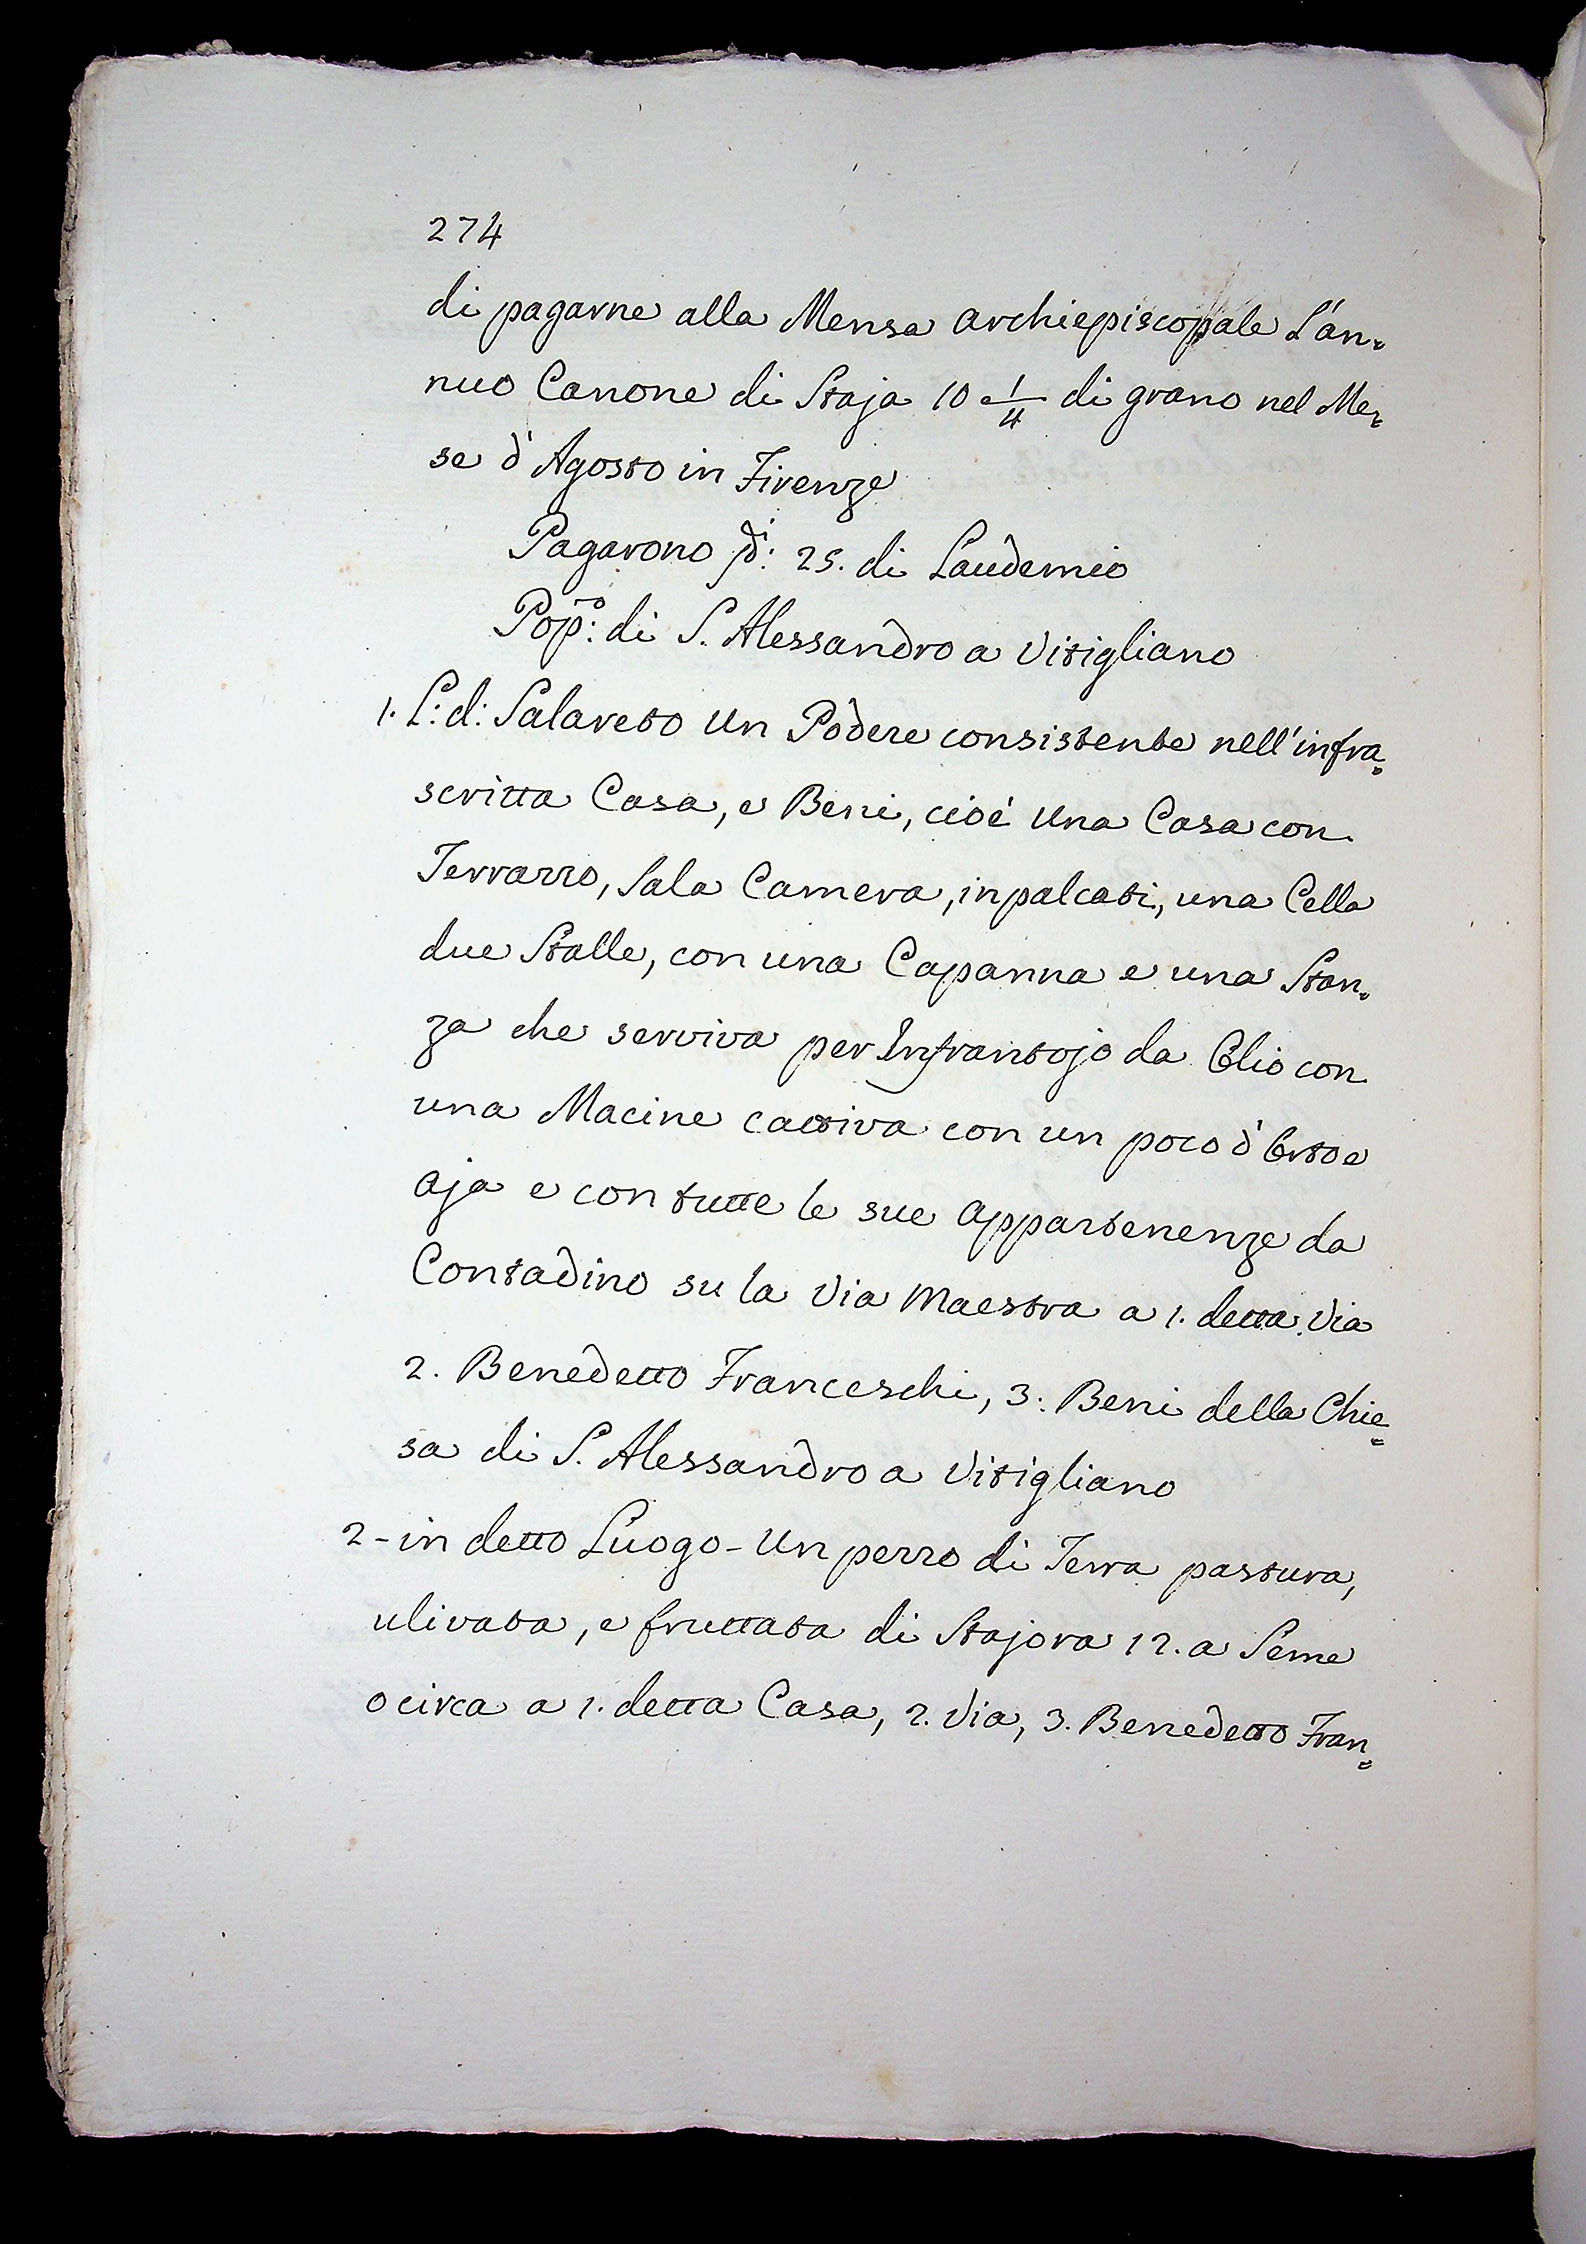 274
di pagarne alla Mensa archiepiscopale L'an=
nuo Canone di Staja 10 e 1/4 di grano nel Me=
se d'Agosto in Firenze
Pagarono 25. di Laudemio
Pop:o di S. Alessandro a Vitigliano
1. L: d: Salareto Un Podere consistente nell'infra=
scritta Casa, e Beni, cioè Una Casa con
Terrazzo, Sala Camera, inpalcati, una Cella
due Stalle, con una Capanna e una Stan=
za che serviva per Infrantojo da Olio con
una Macine cattiva con un poco d'Orto e
Aja e con tutte le sue appartenenze da
Contadino su la Via Maestra a 1. detta Via
2. Benedetto Franceschi, 3. Beni della Chie=
sa di S. Alessandro a Vitigliano
2 - in detto Luogo - Un pezzo di Terra pastura,
ulivata, e fruttata di Stajora 12. a Seme
o circa a 1. detta Casa, 2. Via, 3. Benedetto Fran=